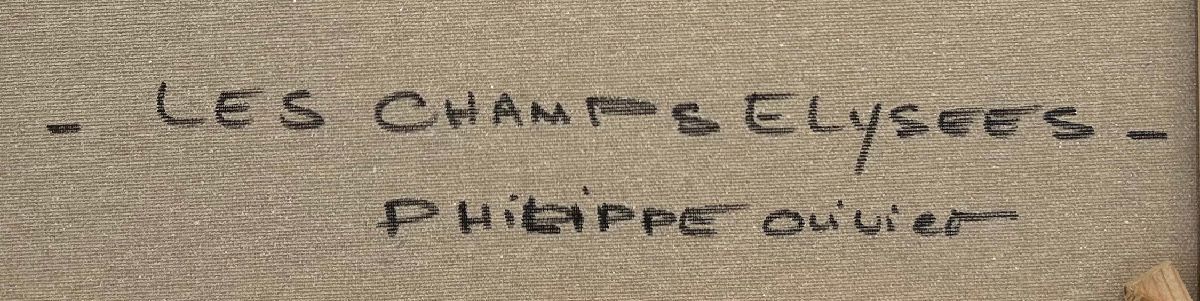 - LES CHAMPS ELYSEES -
PHILIPPE Olivier